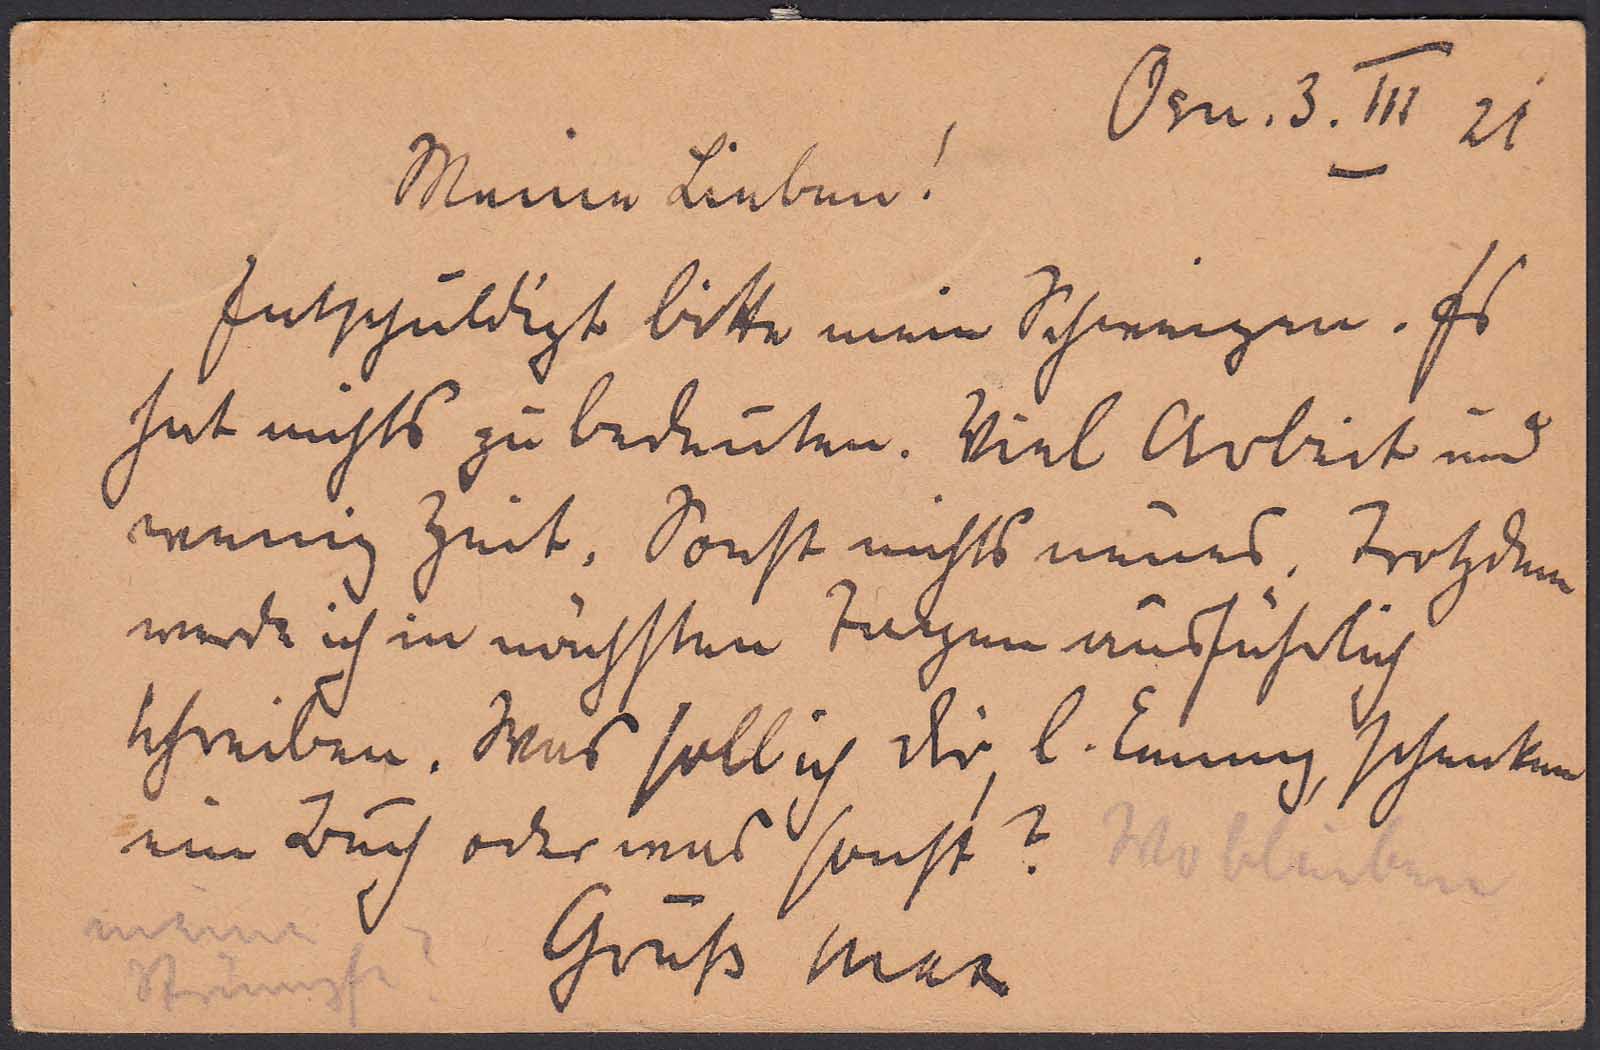 Osn. 3. III 21
Meine Lieben!
Entschuldigt bitte mein Schweigen. Es
hat nichts zu bedeuten. Viel Arbeit und
wenig Zeit. Sonst nichts neues. Trotzdem
werde ich in nächsten Tagen ausführlich
schreiben. Was soll ich dir, l. Emmy, schenken
ein Buch oder was sonst? Wo bleiben
meine
Strümpfe?
Gruß Max